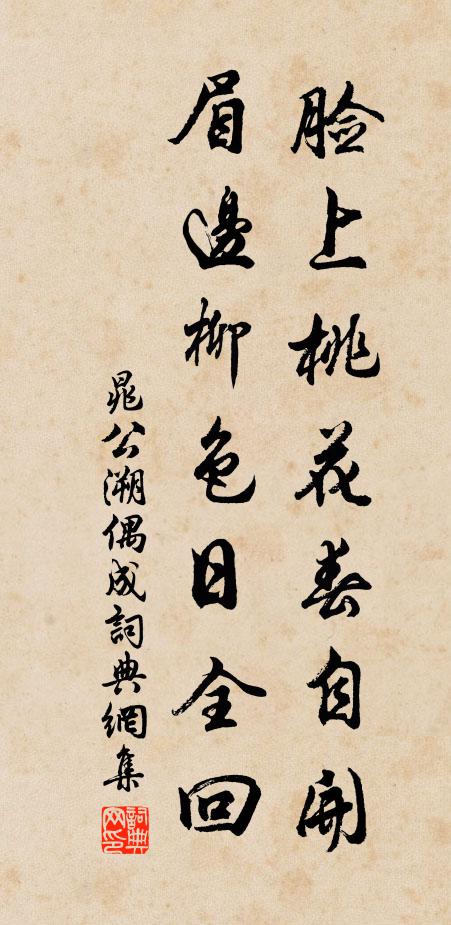 脸上桃花春自開
眉邊柳色日全回
晁公溯偶成詞典網集
詞典網印